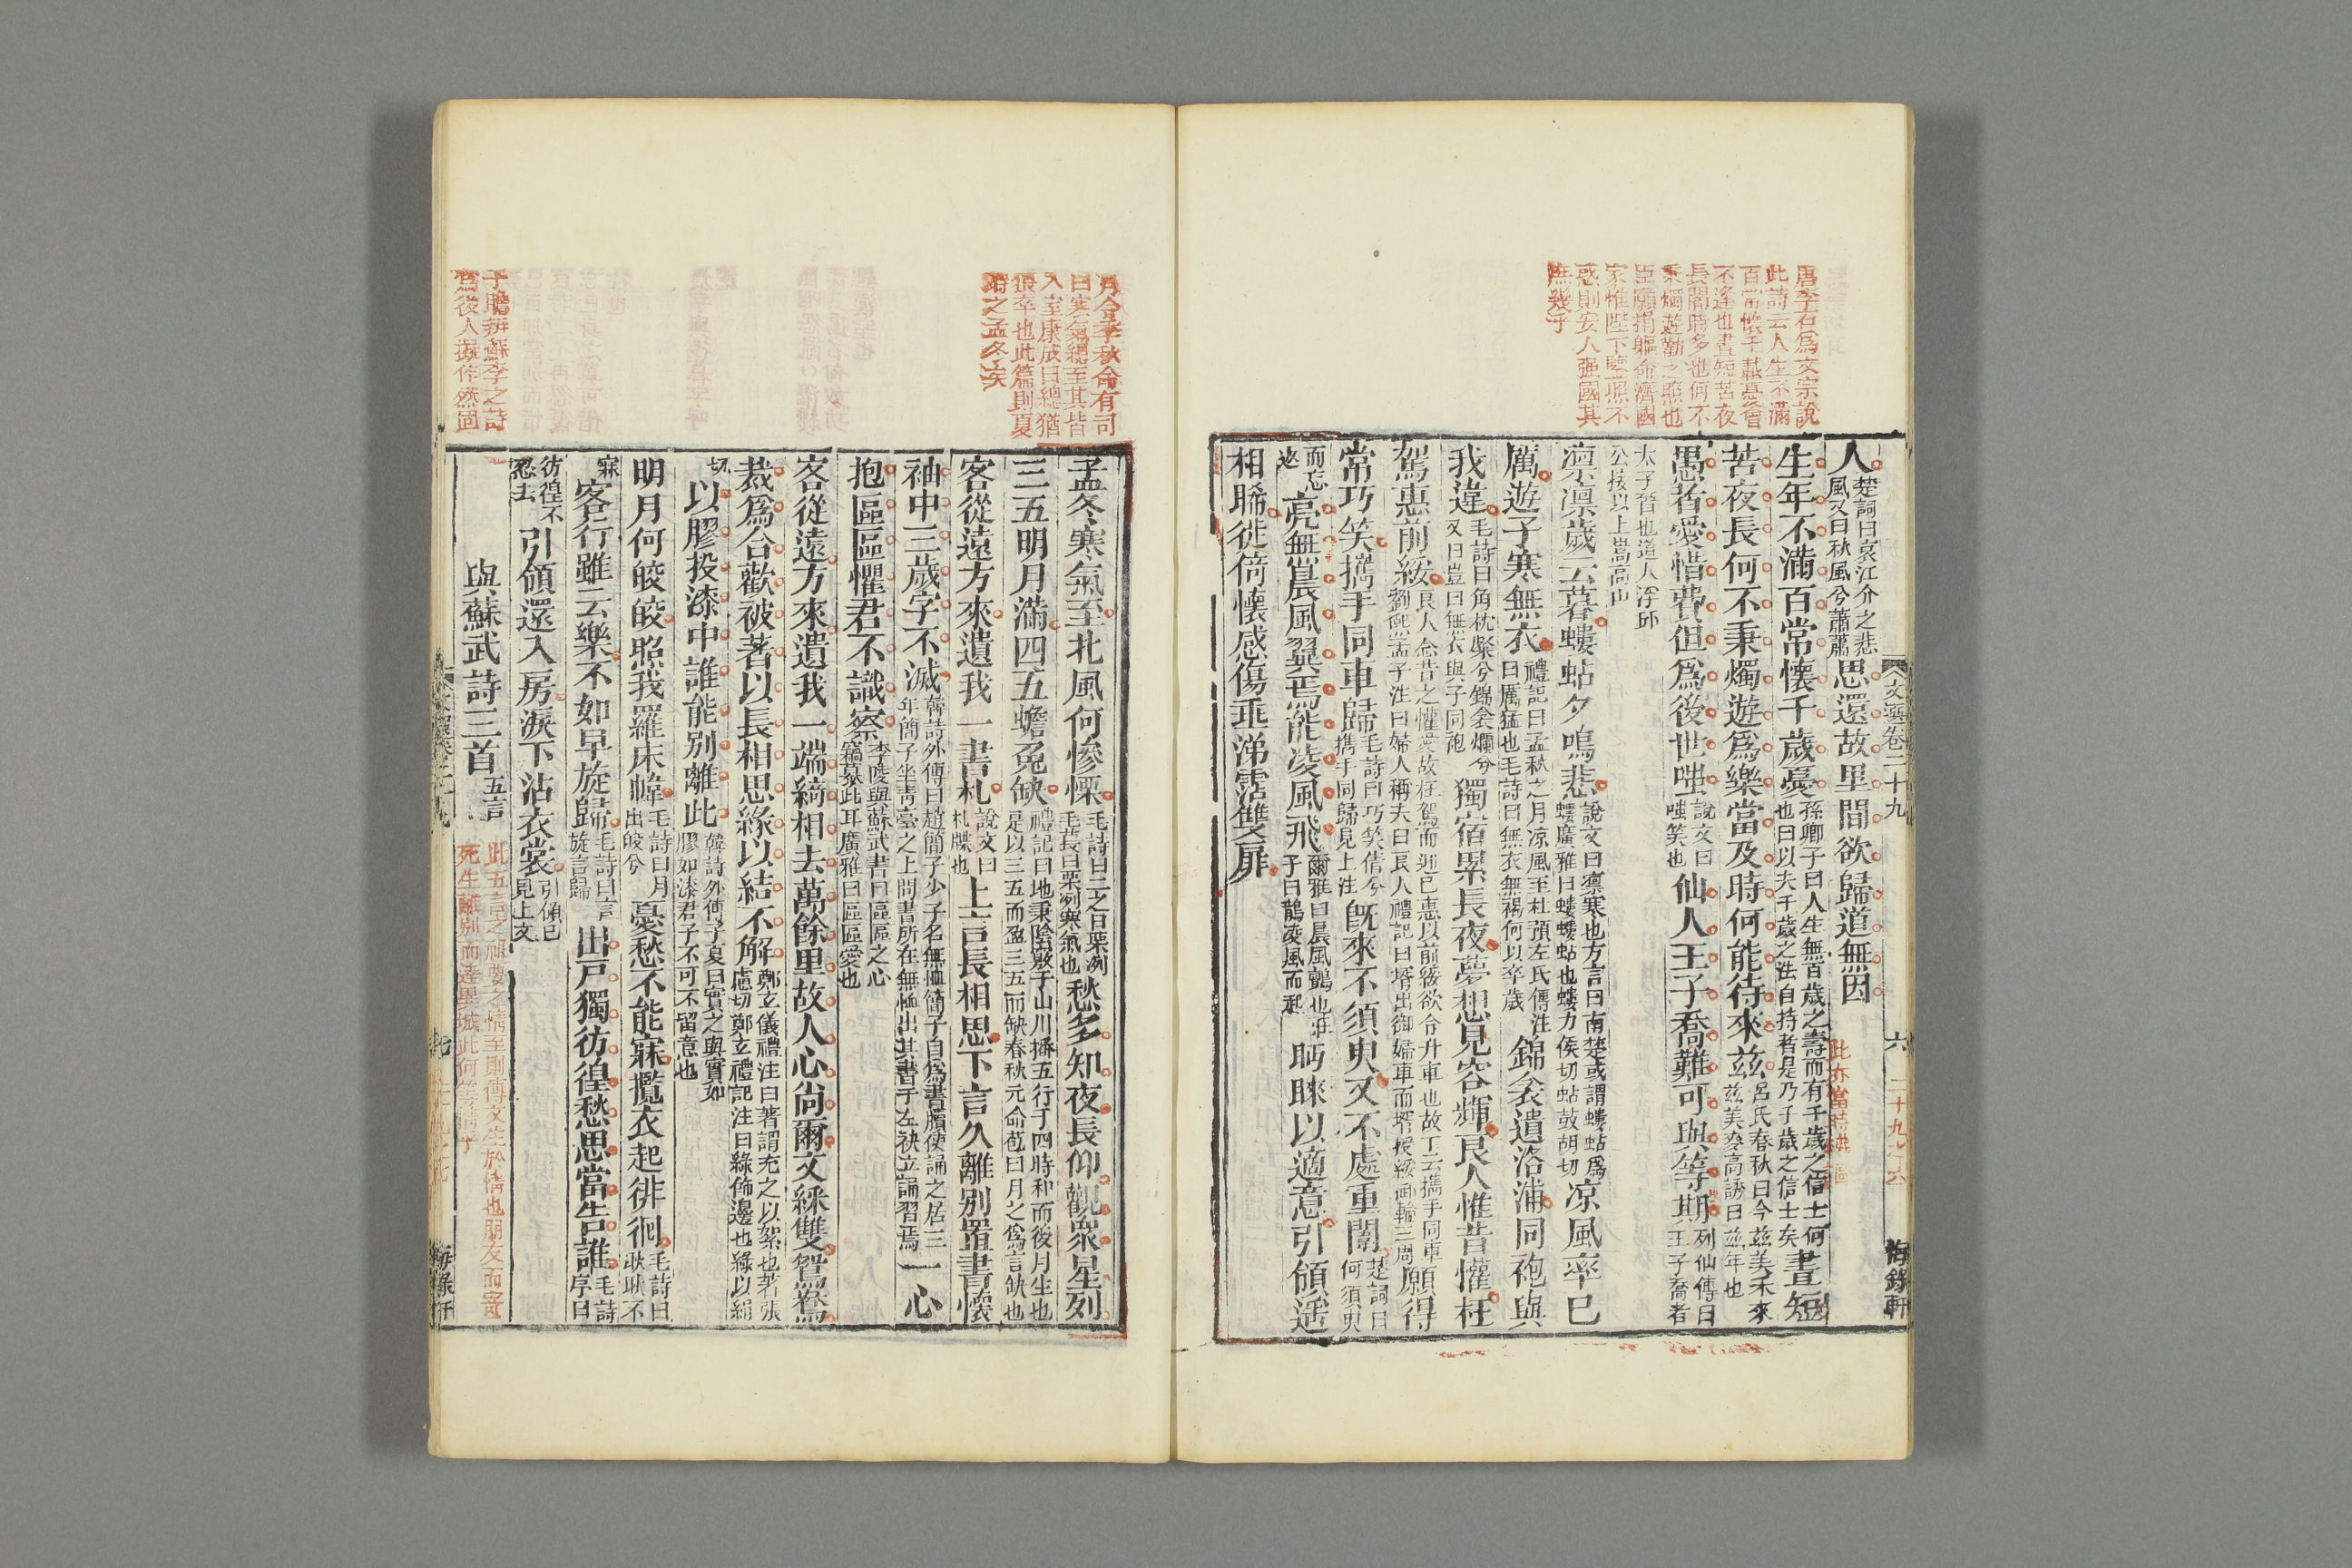 唐李石爲文宗說
此詩云人生不滿
百常懷千載憂會
不逢也晝短苦夜
長闇時多也何不
秉燭遊勸之照也
臣願捐軀命濟國
家惟陛下鑒照不
惑則安人强國其
庶幾乎
文選卷二十九
六
海錄軒
人楚詞曰哀江介之悲風又曰秋風兮蕭蕭思還故里閭欲歸道無因
生年不滿百常懷千歲憂孫卿子曰人生無百歲之壽而有千歲之信士何也曰以夫千歲之法自持者是乃千歲之信士矣晝短
苦夜長何不秉燭遊爲樂當及時何能待來玆呂氏春秋曰今玆美禾來玆美麥高誘曰玆年也
愚者愛惜費但爲後世嗤說文曰嗤笑也仙人王子喬難可與等期列仙傳曰王子喬者
太子晉也道人浮邱公接以上嵩高山
凛凛歲云暮螻蛄夕鳴悲說文曰凛寒也方言曰南楚或謂螻蛄爲螻廣雅曰螻螻蛄也螻力侯切蛄鼓胡切凉風率已
厲遊子寒無衣禮記曰孟秋之月凉風至杜預左氏傳注曰厲猛也毛詩曰無衣無褐何以卒歲錦衾遺洛浦同袍與
我違毛詩曰角枕粲兮錦衾爛兮又曰豈曰無衣與子同袍獨宿累長夜夢想見容輝良人惟昔懽枉
駕惠前綏良人念昔之懽愛故枉駕而迎已惠以前綏欲令升車也故下云攜手同車劉熙孟子注曰婦人稱夫曰良人禮記曰壻出御婦車而壻授綏御輪三周願得
常巧笑攜手同車歸毛詩曰巧笑倩兮攜手同歸見上注旣來不須臾又不處重闈楚詞曰何須臾
而忘返亮無晨風翼焉能凌風飛爾雅曰晨風鸇也莊子曰鵲凌風而起眄睞以適意引領遥
相睎徙倚懷感傷垂涕霑雙扉
月令季秋命有司
曰寒氣總至其皆
入室康成曰總猶
猥卒也此篇則夏
時之孟冬矣
孟冬寒氣至北風何慘慄毛詩曰二之日栗冽毛萇曰栗冽寒氣也愁多知夜長仰觀衆星列
三五明月滿四五蟾兔缺禮記曰地秉陰竅于山川播五行于四時和而後月生也是以三五而盈三五而缺春秋元命苞曰月之爲言缺也
客從遠方來遺我一書札說文曰札牒也上言長相思下言久離別置書懷
袖中三歲字不滅韓詩外傳曰趙簡子少子名無恤簡子自爲書牘使誦之居三年簡子坐靑臺之上問書所在無恤出其書于左袂立誦習焉一心
抱區區懼君不識察李陵與蘇武書曰區區之心竊慕此耳廣雅曰區區愛也
客從遠方來遺我一端綺相去萬餘里故人心尙爾文綵雙鴛鴦
裁爲合歡被著以長相思緣以結不解鄭玄儀禮注曰著謂充之以絮也著張慮切鄭玄禮記注曰緣飾邊也緣以絹
切以膠投漆中誰能別離此韓詩外傳子夏曰實之與實如膠如漆君子不可不留意也
明月何皎皎照我羅床幃毛詩曰月出皎兮憂愁不能寐攬衣起徘徊毛詩曰耿耿不
寐客行雖云樂不如早旋歸毛詩曰言旋言歸出戸獨彷徨愁思當告誰毛詩序曰
彷徨不忍去引領還入房淚下沾衣裳引領已見上文
與蘇武詩三首五言
此五言之神妙之情至則傳文生於情也朋友而寄
死生離别而逢星城此何等
子瞻辨蘇李之詩
爲後人擬作然固
七
海錄軒